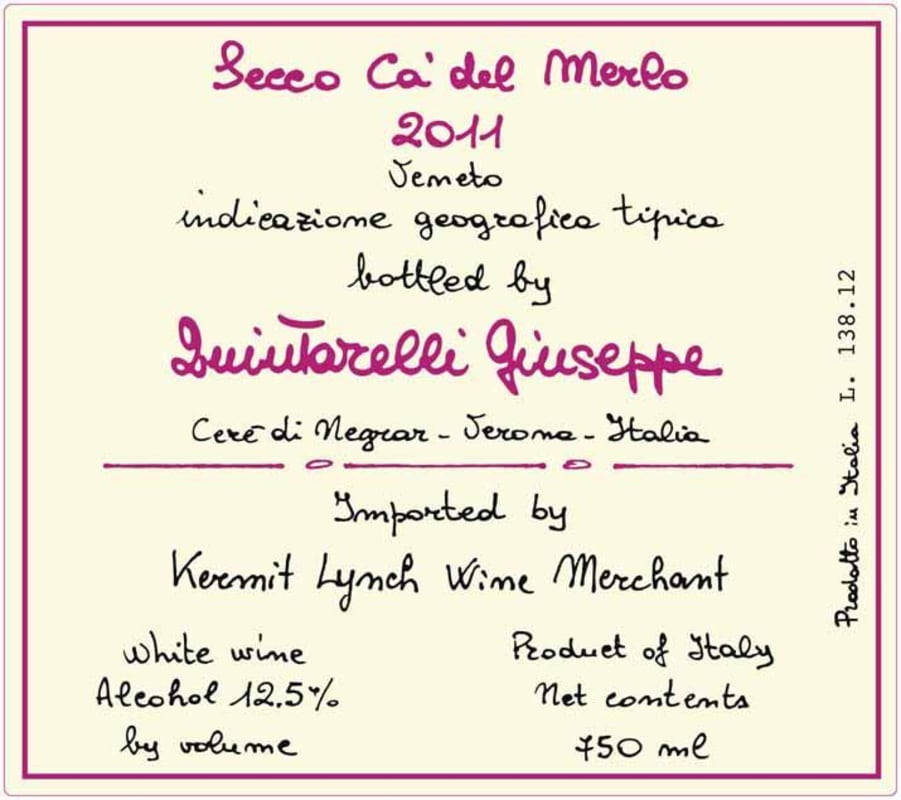 Secco Ca' del Merlo
2011
Veneto
indicazione geografica tipica
bottled by
Quintarelli Giuseppe
Cerè di Negrar - Verona - Italia
Imported by
Kermit Lynch Wine Merchant
White wine
Alcohol 12.5%
by volume
Product of Italy
Net contents
750 ml
Prodotto in Italia L. 138.12